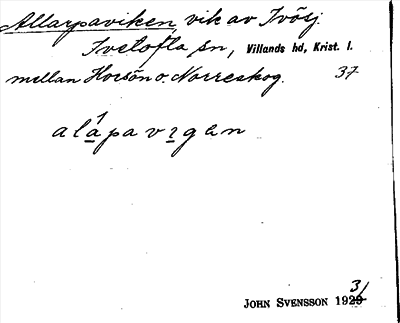 Allarpaviken, vik av Ivösj.
Ivetofta sn, Villands hd, Krist. l.
mellan Horsön o. Norreskog. 37
alápavıgen
JOHN SVENSSON 1931